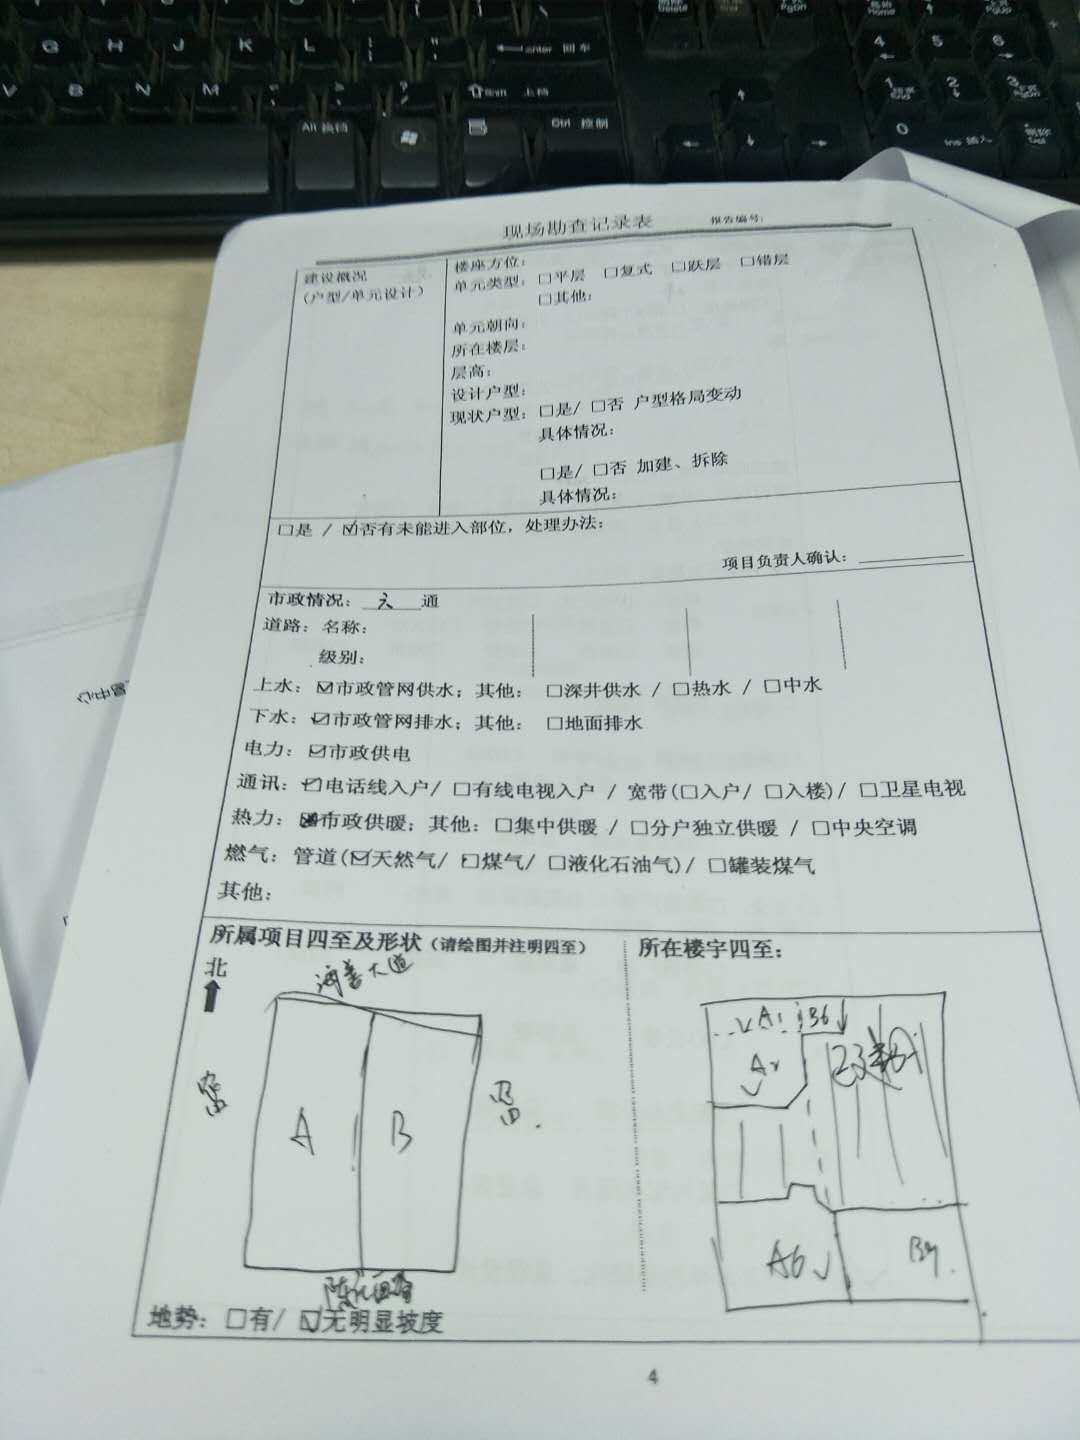 G H J K L
enter 回车
V B N M
Shift 上档
Alt 换档
Ctrl 控制
Delete
PgDn
Home
PgUp
4 5 6
1 2 3
End
PgDn
0
Ins 插入
Del
现场勘查记录表 报告编号:
建设概况
(户型/单元设计)
楼座方位:
单元类型: □平层 □复式 □跃层 □错层
□其他:
单元朝向:
所在楼层:
层高:
设计户型:
现状户型: □是/ □否 户型格局变动
具体情况:
□是/ □否 加建、拆除
具体情况:
□是 / ☑否有未能进入部位，处理办法:
项目负责人确认:
市政情况: 六 通
道路: 名称:
级别:
上水: ☑市政管网供水; 其他: □深井供水 / □热水 / □中水
下水: ☑市政管网排水; 其他: □地面排水
电力: ☑市政供电
通讯: ☑电话线入户/ □有线电视入户 / 宽带(□入户/ □入楼)/ □卫星电视
热力: 市政供暖; 其他: □集中供暖 / □分户独立供暖 / □中央空调
燃气: 管道(☑天然气/ □煤气/ □液化石油气)/ □罐装煤气
其他:
所属项目四至及形状 (请绘图并注明四至)
所在楼宇四至:
北
大道
A B
A1 B6
A6
地势: □有/ ☑无明显坡度
4